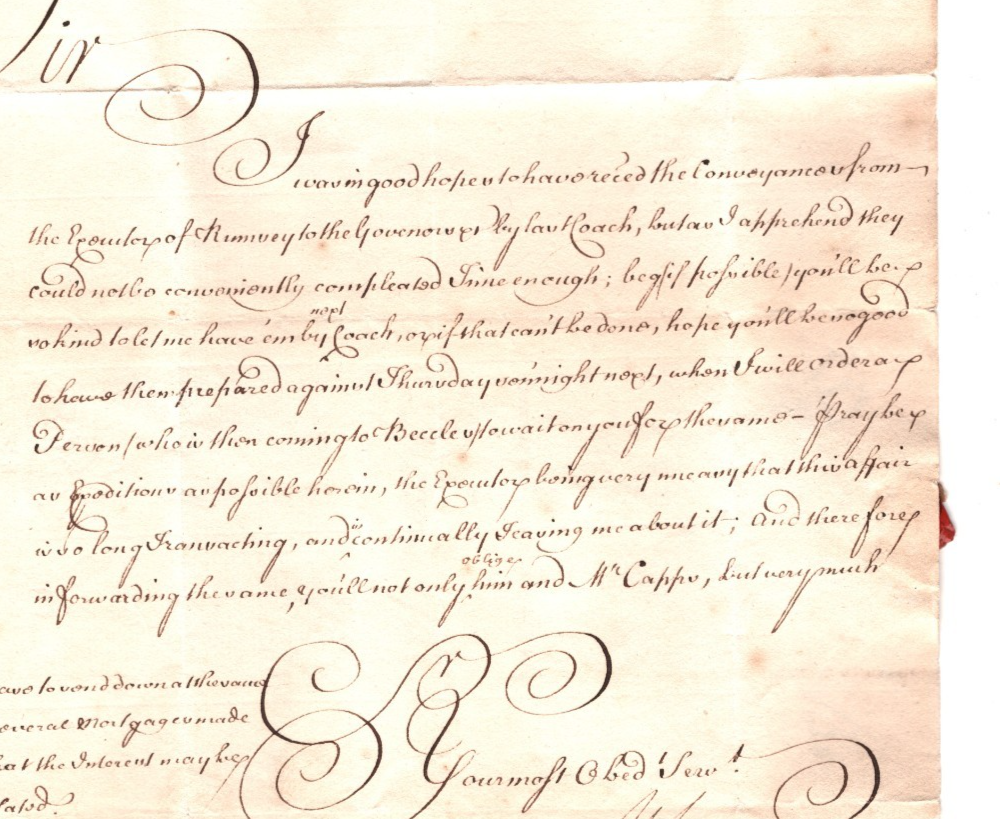 Sir
I was in good hopes to have reced the Conveyances from
the Executor of Rumsey to the Govenors by last Coach, but as I apprehend they
could not be conveniently compleated Time enough; beg (if possible) you'll be
so kind to let me have 'em by next Coach, or if that can't be done, hope you'll be so good
to have them prepared against Thursday sen'night next, when I will order a
Person (who is then coming to Beccles) to wait on you for the same – Pray be
as Expeditious as possible herein, the Executor being very uneasy that this affair
is so long Transacting, and is continually Teazing me about it; and therefore
in forwarding the same, you'll not only oblige him and Mr. Capps, but very much
Sr
Your most Obed't Serv.t
to send down at the same
several Mortgages made
that the Interest may be